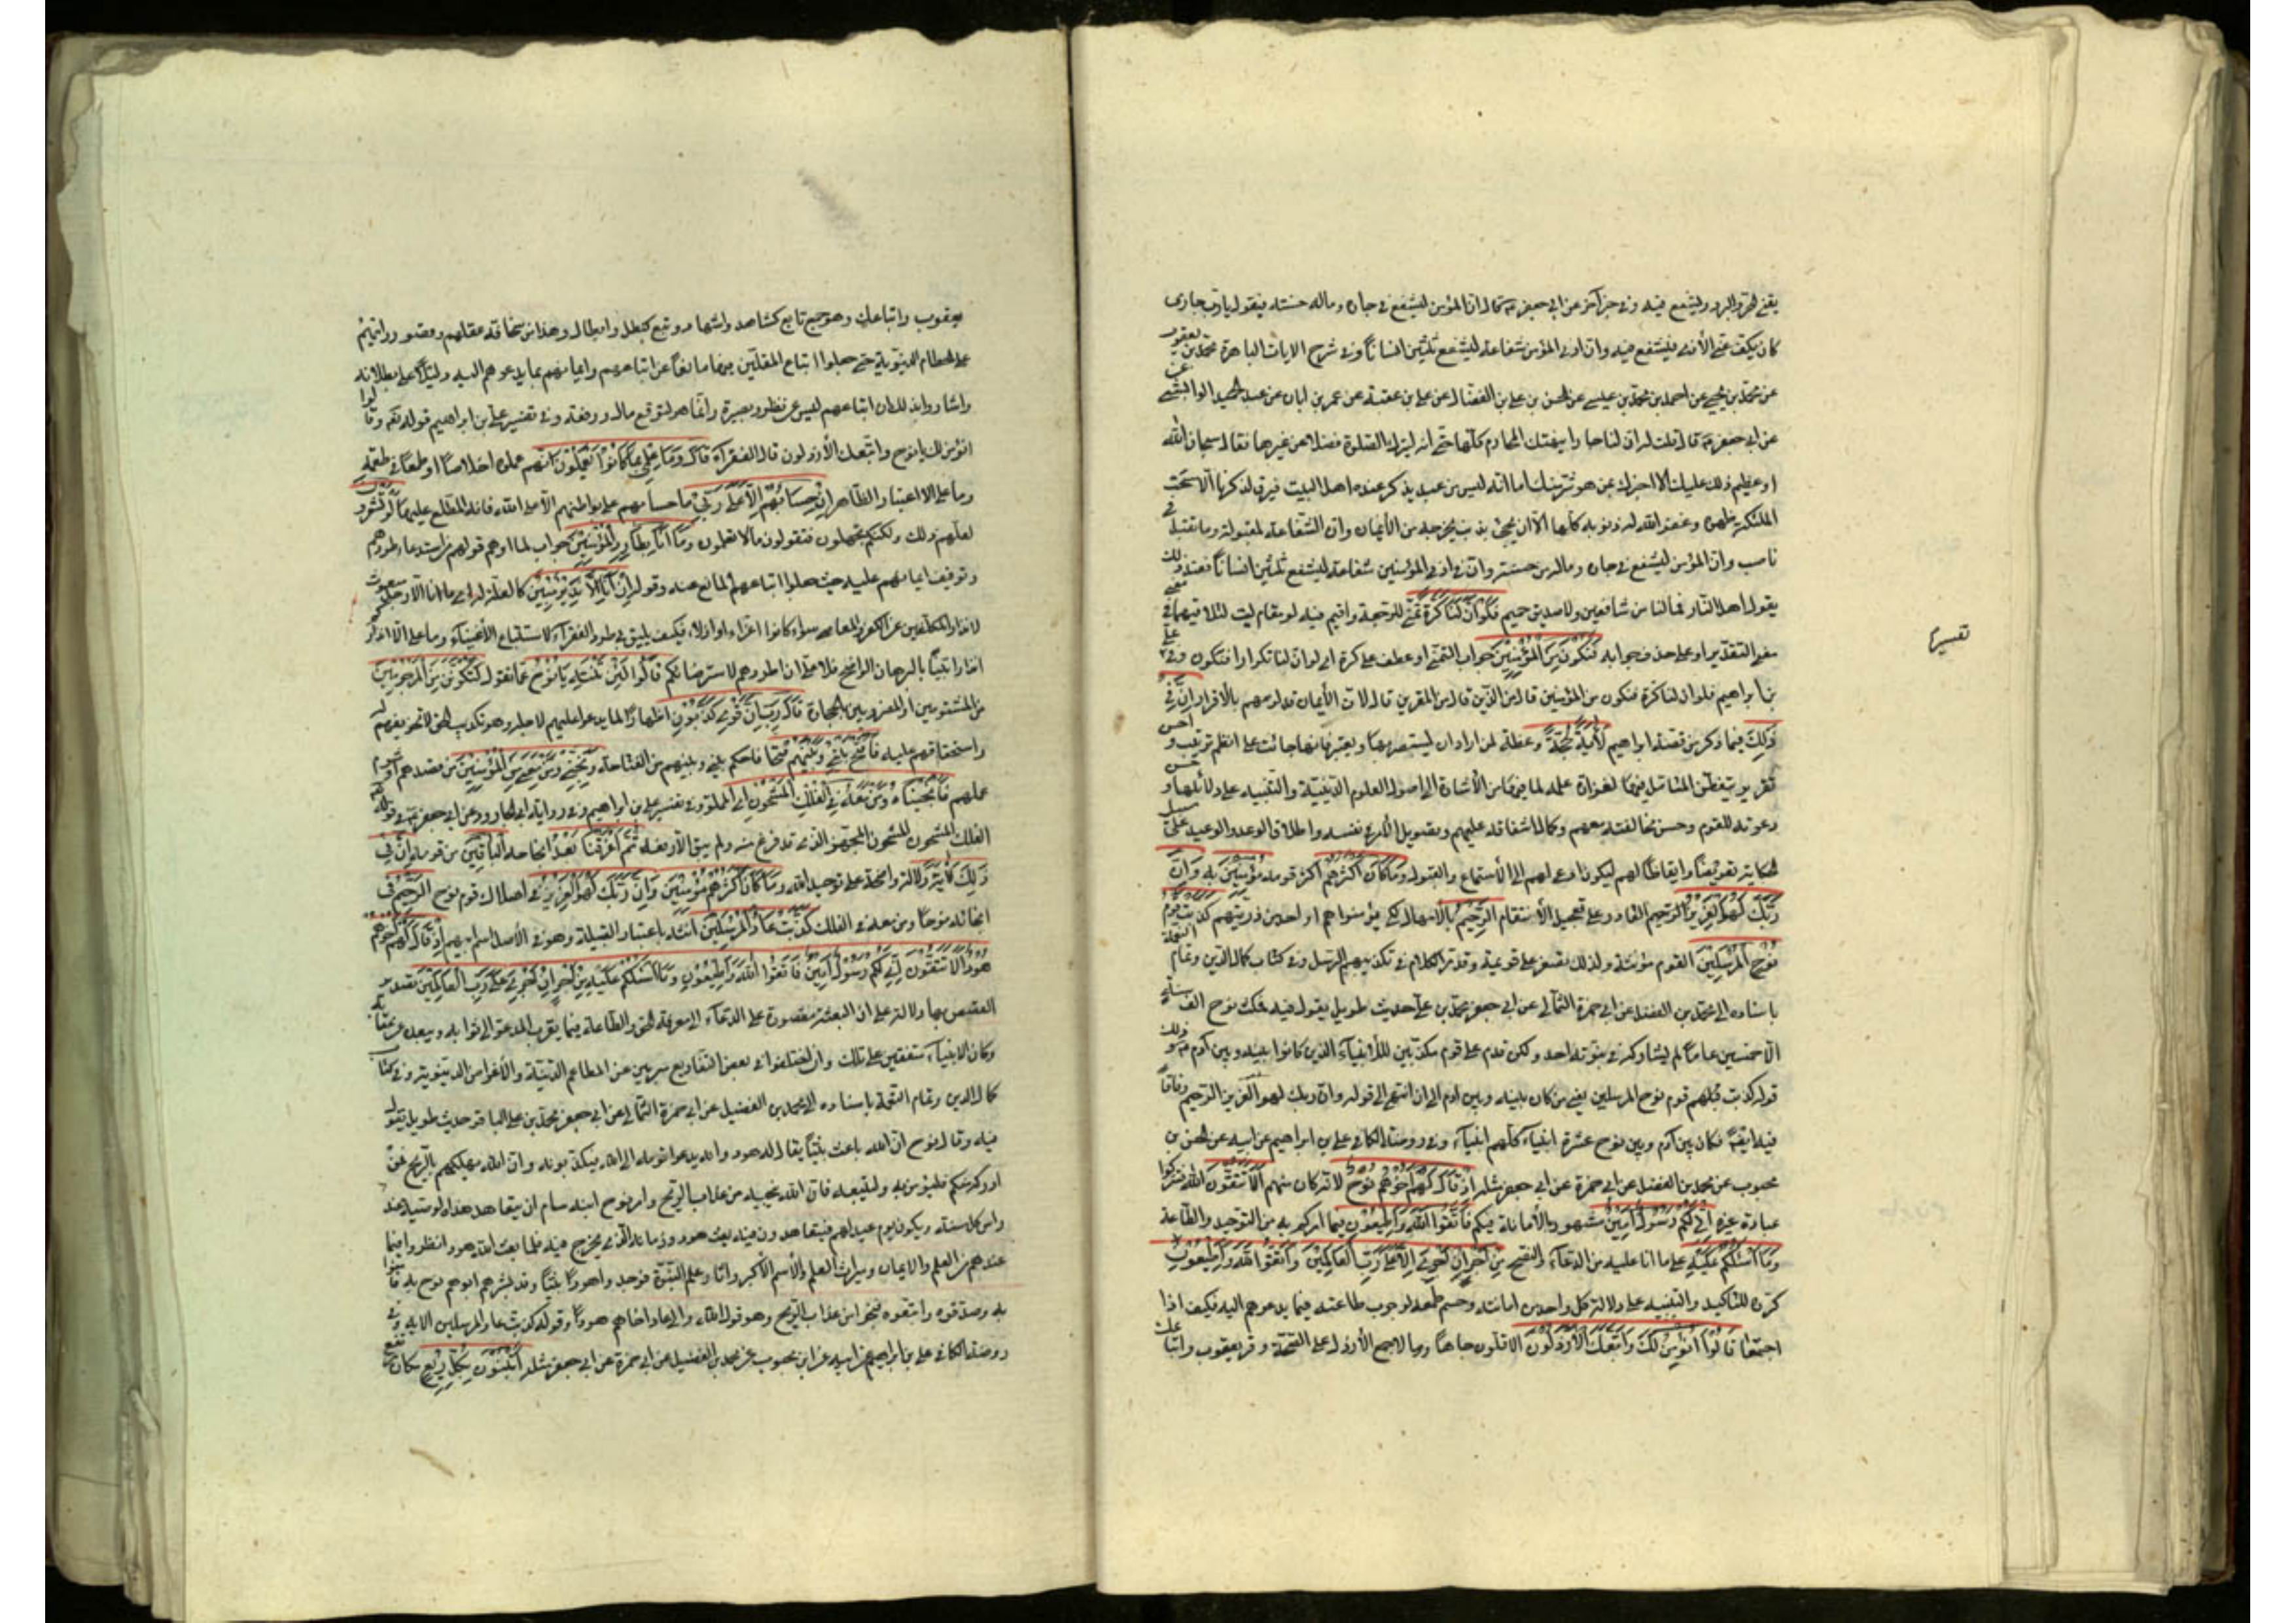 يقيه الحر والبرد وليشفع فيه وفي خبر آخر عن ابي جعفر ع قال ان المؤمن ليشفع في جاره وماله حسنة فيقول يا رب جاري
كان يكف عني الأذى فيشفع فيه وان ادنى المؤمن شفاعة ليشفع لثلثين انسانا وفي شرح الايات الباهرة محمد بن يعقوب
عن محمد بن يحيى عن احمد بن محمد بن عيسى عن الحسن بن علي بن الفضال عن علي بن عقبة عن عمر بن ابان عن عبد الحميد الوابشي
عن ابي جعفر ع قال قلت له ان لنا جارا ينتهك المحارم كلها حتى انه ليترك الصلوة فضلا عن غيرها فقال سبحان الله
او عظيم ذلك عليك الا اخبرك عن هو شر منك اما انه ليس من عبد يذكر عنده اهل البيت فيرق لذكرنا الا مسحت
الملئكة ظهره وغفر الله له ذنوبه كلها الا ان يجئ بذنب يخرجه من الأيمان وان الشفاعة لمقبولة وما تقبل في
ناصب وان المؤمن ليشفع في جاره وماله من حسنة وان ادنى المؤمنين شفاعة ليشفع لثلثين انسانا فعند ذلك
يقول اهل النار فما لنا من شافعين ولا صديق حميم فلو ان لنا كرة تمني للرجعة واقيم فيه لو مقام ليت لتلاقيهما في معنى
معنى التقدير او على حذف جوابه فنكون من المؤمنين جواب التمني او عطف على كرة اي لو ان لنا نكر او فنكون وفي علي
بن ابراهيم فلو ان لنا كرة فنكون من المؤمنين قال من الذين قال من المقرين قال لان الأيمان قد لزمهم بالأقرار ان في
ذلك فيما ذكر من قصة ابراهيم لأية لحجة وعظة لمن اراد ان يستبصر بها ويعتبر فانها جائت على انظم ترتيب واحسن
تقرير يتفطن المتأمل فيها لغزارة علمه لما فيها من الأشارة الى اصول العلوم الدينية والتنبيه على دلائلها وحسن
دعوته للقوم وحسن مخالفته معهم وكمال اشفاقه عليهم وتصوير الأمر في نفسه واطلاق الوعد والوعيد على سبيل
الحكاية تعريضا وايقاظا لهم ليكون ادعى لهم الى الأستماع والقبول وما كان اكثرهم اكثر قومه مؤمنين به وان
ربك لهو العزيز الرحيم القادر على تعجيل الأنتقام الرحيم بالأمهال لكي يؤمنوا هم او احد من ذريتهم كذبت قوم
نوح المرسلين القوم مؤنثة ولذلك تصغر على قويمة وقد مر الكلام في تكذيبهم الرسل وفي كتاب كمال الدين وتمام النعمة
باسناده الى محمد بن الفضل عن ابي حمزة الثمالي عن ابي جعفر محمد بن علي حديث طويل يقول فيه فمكث نوح الف سنة
الا خمسين عاما لم يشاركه في نبوته احد ولكن قدم على قوم مكذبين للأنبياء الذين كانوا بينه وبين آدم ع وذلك
قوله كذبت قبلهم قوم نوح المرسلين يعني من كان بينه وبين ادم الى ان انتهى الى قوله وان ربك لهو العزيز الرحيم وقال
فيه ايضا فكان بين آدم وبين نوح عشرة ابنياء كلهم انبياء وفي روضة الكافي علي بن ابراهيم عن ابيه عن الحسن بن
محبوب عن محمد بن الفضل عن ابي حمزة عن ابي جعفر مثله اذ قال لهم اخوهم نوح لانه كان منهم الا تتقون الله فتتركوا
عبادة غيره اني لكم رسول امين مشهور بالأمانة فيكم فاتقوا الله واطيعون فيما امركم به من التوحيد والطاعة
وما اسئلكم عليه على ما انا عليه من الدعاء والنصح من اجر ان اجري الا على رب العالمين واتقوا الله واطيعون
كرره للتأكيد والتنبيه على دلالة كل واحد من امانته وحسم طمعه لوجوب طاعته فيما يدعوهم اليه فكيف اذا
اجتمعا قالوا انؤمن لك واتبعك الأرذلون الاقلون جاها ومالا جمع الأرذل على الصحة وقر يعقوب واتباعك
تفسيرها
يعقوب واتباعك وهو جمع تابع كشاهد واشهاد وتبع كبطل وابطال وهذا من سخافة عقلهم وقصور رايهم
على الحطام الدنيوية حتى جعلوا اتباع المقلين فيها مانعا عن اتباعهم وايمانهم بما يدعوهم اليه ودليلا على بطلانه
واشاروا بذلك ان اتباعهم ليس عن نظر وبصيرة وانما هو لتوقع مال ورفعة وفي تفسير علي بن ابراهيم قوله تعالى وقالوا
انؤمن لك يا نوح واتبعك الأرذلون قال الفقراء قال وما علمي بما كانوا يعملون انهم عملوه اخلاصا او طمعا في طعمة
وما علي الا اعتبار الظاهر ان حسابهم الا على ربي ما حسابهم على بواطنهم الا على الله فانه المطلع عليها لو تشعرون
لعلمتم ذلك ولكنكم تجهلون فتقولون ما لا تعلمون وما انا بطارد المؤمنين جواب لما اوهم قولهم من استدعاء طردهم
وتوقيف ايمانهم عليه حيث جعلوا اتباعهم المانع عنه وقوله ان انا الا نذير مبين كالعلة له اي ما انا الا رجل مبعوث
لانذار المكلفين عن الكفر والمعاصي سواء كانوا اعزاء او اذلاء فكيف يليق بي طرد الفقراء لاستتباع الأغنياء وما علي الا انذاركم
انذارا بينا بالبرهان الواضح فلا علي ان اطردهم لاسترضائكم قالوا لئن لم تنته يا نوح عما تقول لتكونن من المرجومين
من المشتومين او المضروبين بالحجارة قال رب ان قومي كذبون اظهارا لما يدعو عليهم لاجله وهو تكذيب الحق لا تخويفهم له
واستخفافهم عليه فافتح بيني وبينهم فتحا فاحكم بيني وبينهم من الفتاحة ونجني ومن معي من المؤمنين من قصدهم او شوم
عملهم فانجيناه ومن معه في الفلك المشحون اي المملو وفي تفسير علي بن ابراهيم وفي رواية ابي الجارود عن ابي جعفر ع في قوله
الفلك المشحون المشحون المجهز الذي قد فرغ منه ولم يبق الا رفعه ثم اغرقنا بعد انجائه الباقين من قومه ان في
ذلك لأية دلالة واضحة على توحيد الله وما كان اكثرهم مؤمنين وان ربك لهو العزيز في اهلاك قوم نوح الرحيم في
انجائه نوحا ومن معه في الفلك كذبت عاد المرسلين انثه باعتبار القبيلة وهو في الأصل اسم ابيهم اذ قال لهم اخوهم
هود الا تتقون اني لكم رسول امين فاتقوا الله واطيعون وما اسئلكم عليه من اجر ان اجري الا على رب العالمين تصدير
القصص بها دلالة على ان البعثة مقصورة على الدعاء الى معرفة الحق والطاعة فيما يقرب المدعو الى ثوابه ويبعده عن عقابه
وكان الانبياء متفقين على ذلك وان اختلفوا في بعض التفاريع مبرئين عن المطامع الدنية والأغراض الدنيوية وفي كتاب
كمال الدين وتمام النعمة باسناده الى محمد بن الفضيل عن ابي حمزة الثمالي عن ابي جعفر محمد بن علي الباقر حديث طويل يقول
فيه وقال نوح ان الله باعث نبيا يقال له هود وانه يدعو قومه الى الله فيكذبونه وان الله مهلكهم بالريح فمن
ادركه منكم فليؤمن به وليتبعه فان الله ينجيه من عذاب الريح وامر نوح ابنه سام ان يتعاهد هذه الوصية عند
راس كل سنة ويكون يوم عيد لهم فيتعاهدون فيه بعث هود وزمانه الذي يخرج فيه فلما بعث الله هودا نظروا فيما
عندهم من العلم والايمان وميراث العلم والأسم الأكبر واثار علم النبوة فوجدوا هودا نبيا وقد بشرهم ابوهم نوح به فامنوا
به وصدقوه واتبعوه فنجوا من عذاب الريح وهو قول الله والى عاد اخاهم هودا وقوله كذبت عاد المرسلين الاية وفي
روضة الكافي علي بن ابراهيم عن ابيه عن ابن محبوب عن محمد بن الفضيل عن ابي حمزة عن ابي جعفر مثله اتبنون بكل ريع مكان